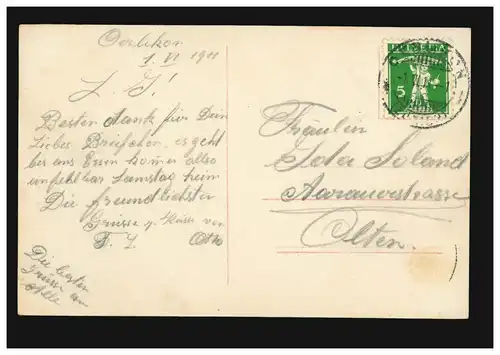 Oerlikon
1. VI 1911
L. I!
Besten Dank für Dein
Liebes Briefchen, es geht
bei uns Essen komen also
unfehlbar Samstag heim
Die freundlichsten
Grüsse u. Küsse von
F. J. Otto
Die besten
Grüsse an
Alle
HELVETIA
5
Fräulein
Ida Soland
Aarauerstrasse
Olten.